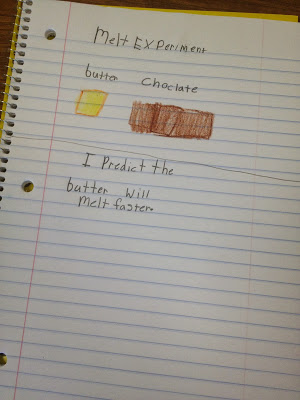 Melt EXPeriment
butter Choclate
I Predict the
butter Will
Melt faster.